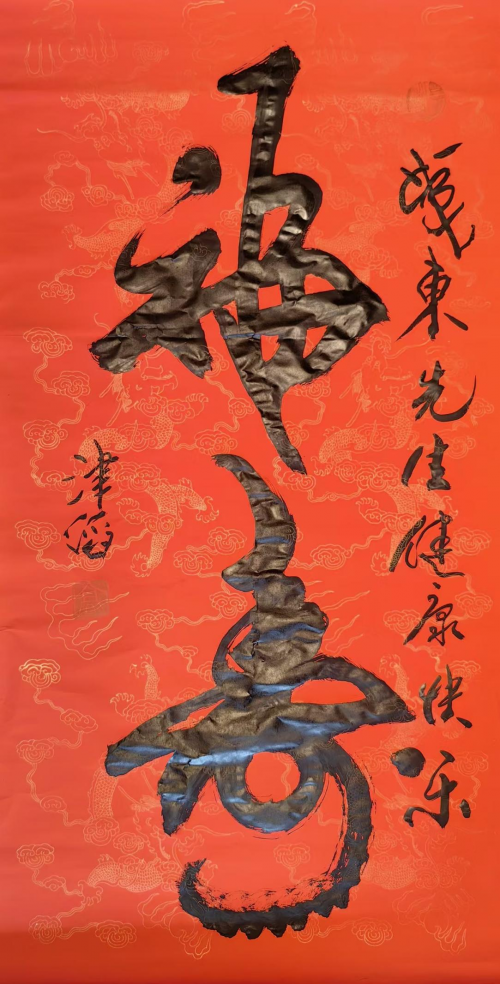 東先生健康快乐
福寿
津滔